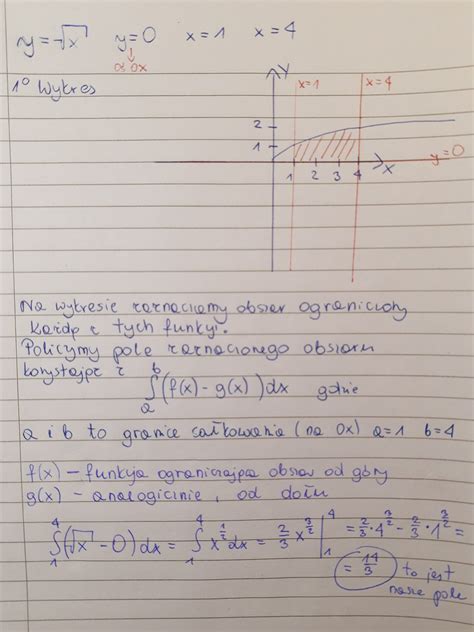 y=√x y=0 x=1 x=4
↓
oś OX
1° Wykres
Y
x=1
x=4
2
1
1 2 3 4
X
y=0
Na wykresie zaznaczamy obszar ograniczony
każdą z tych funkcji.
Policzymy pole zaznaczonego obszaru
korzystając z
∫ₐᵇ (f(x) - g(x)) dx gdzie
a i b to granice całkowania (na OX) a=1 b=4
f(x) – funkcja ograniczająca obszar od góry
g(x) – analogicznie, od dołu
∫₁⁴ (√x - 0) dx = ∫₁⁴ x^(1/2) dx = 2/3 x^(3/2) |₁⁴ = 2/3 · 4^(3/2) - 2/3 · 1^(3/2) =
= 14/3 to jest
nasze pole